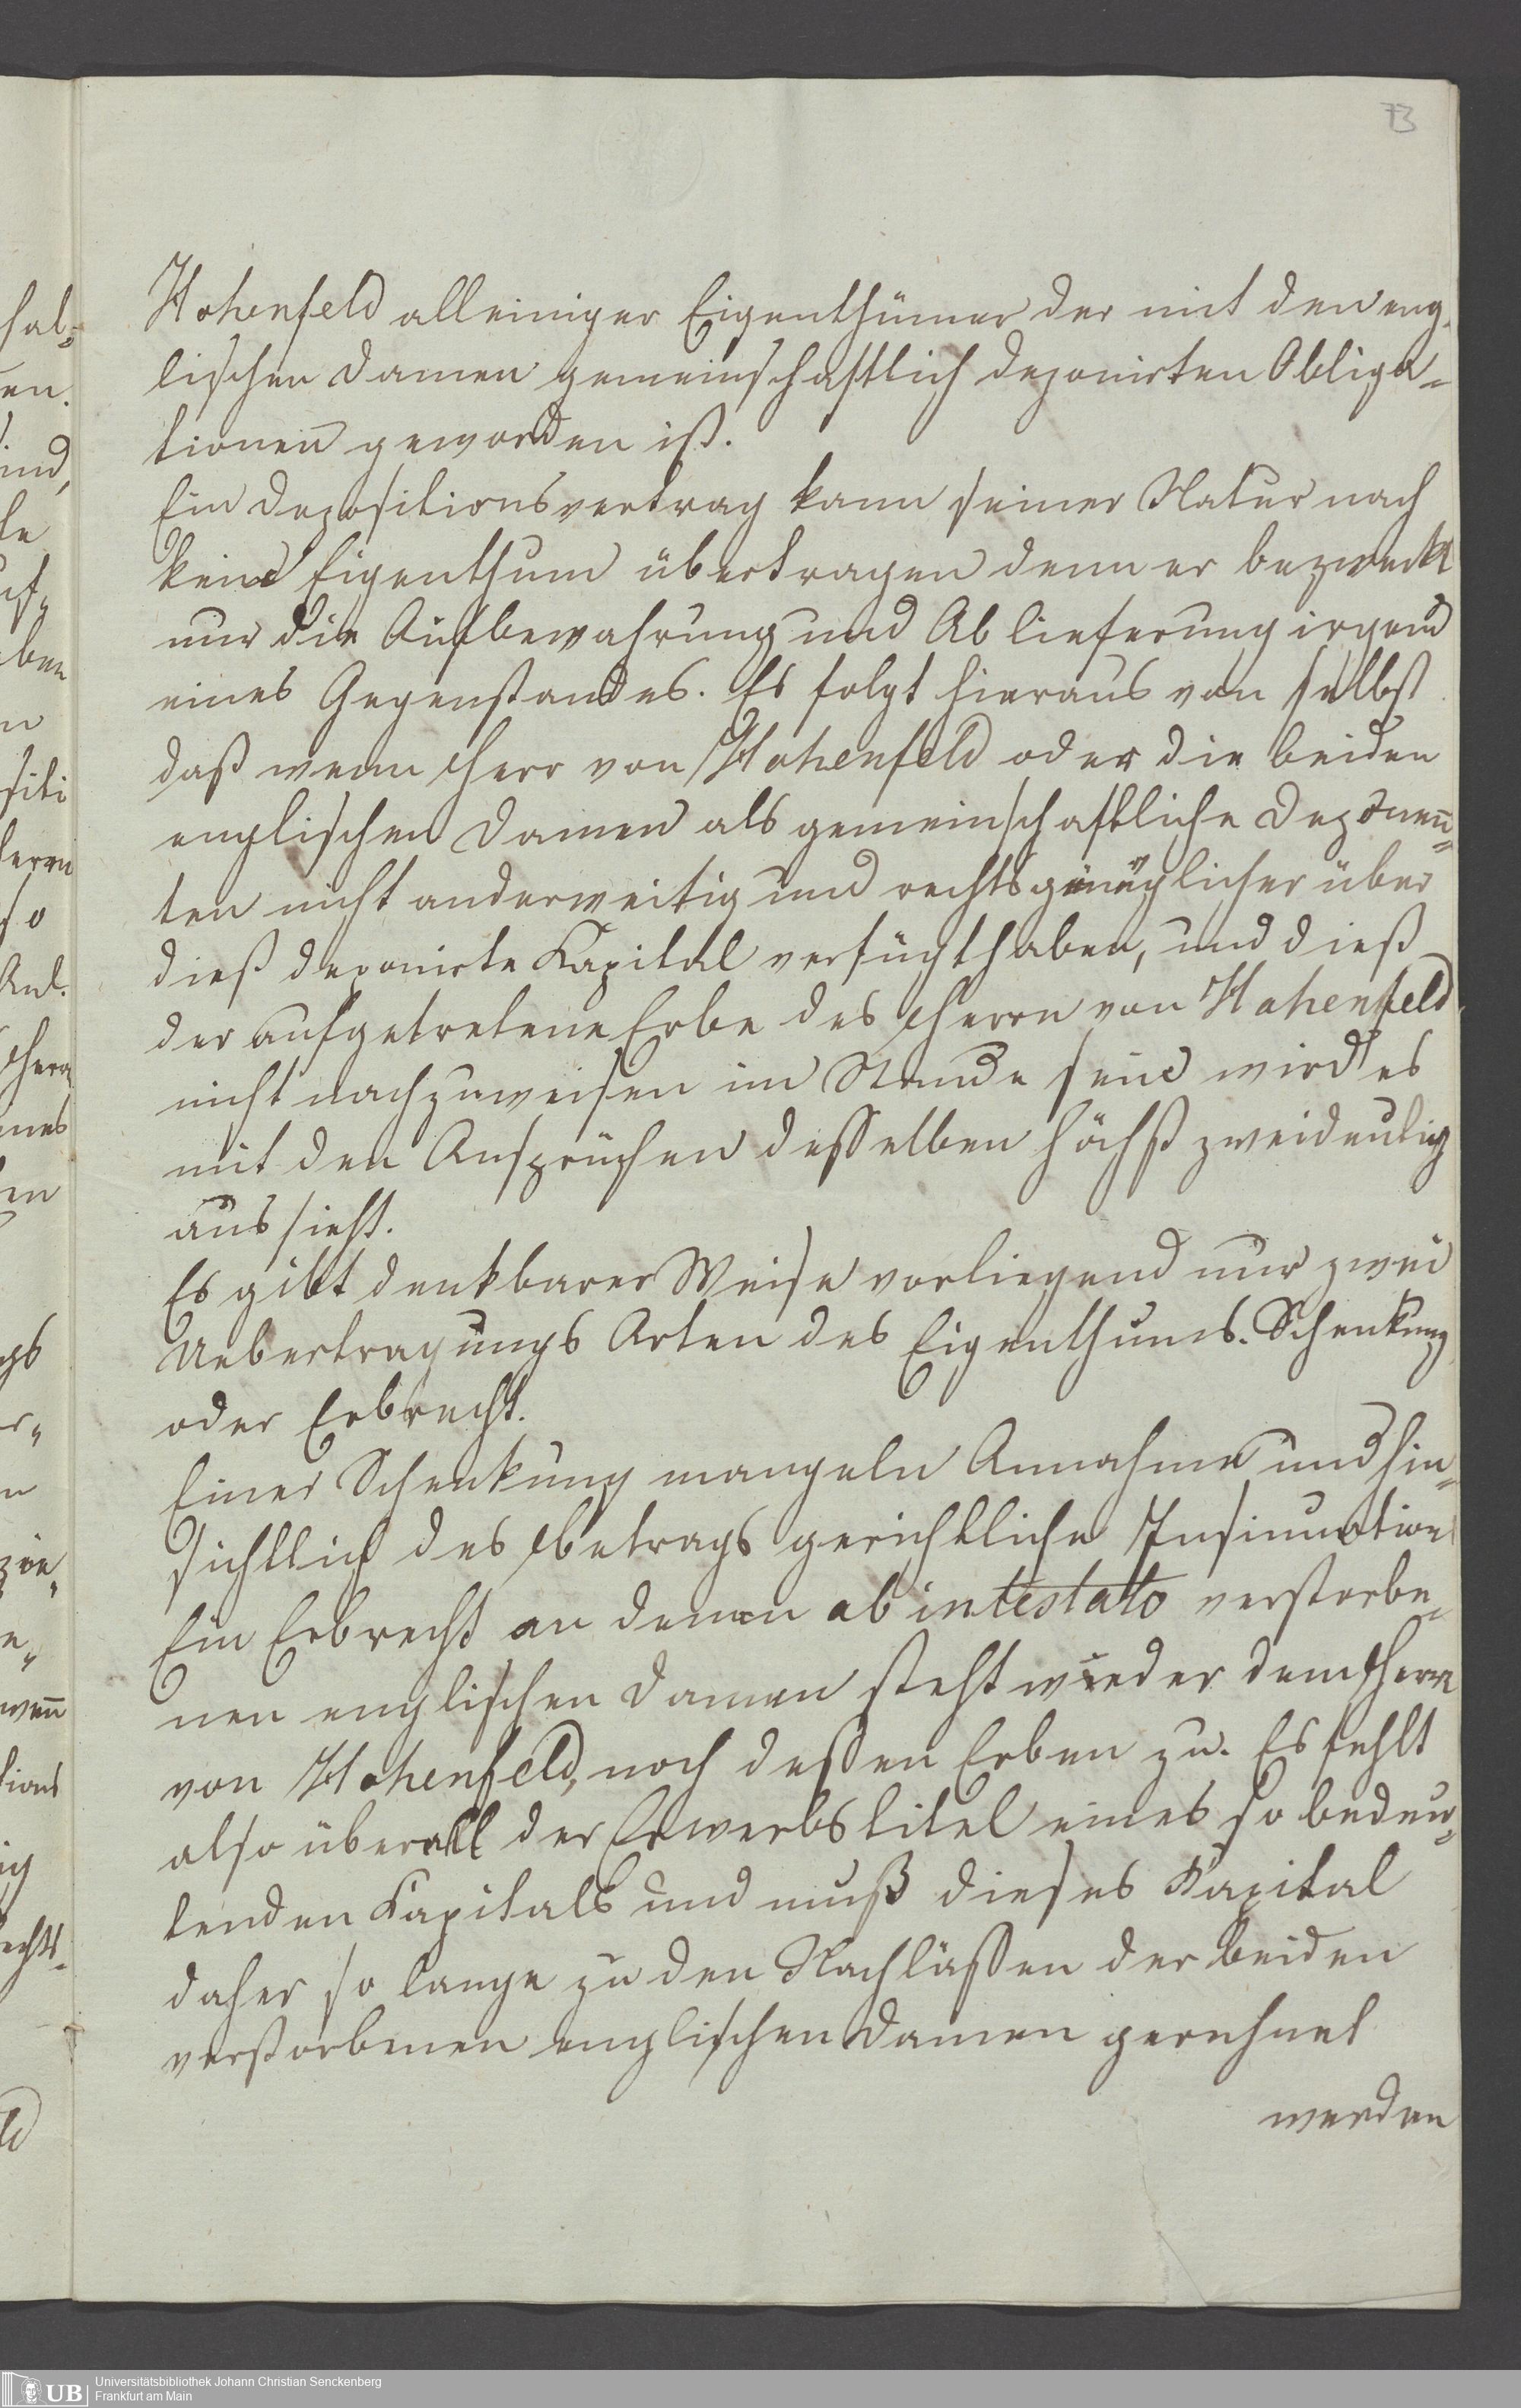 73
Hohenfeld alleiniger Eigenthümer der mit den eng-
lischen Damen gemeinschaftlich deponirten Obliga=
tionen geworden ist.
Ein Depositionsvertrag kann seiner Natur nach
kein Eigenthum übertragen denn er bezweckt
nur die Aufbewahrung und Ablieferung irgend
eines Gegenstandes. Es folgt hieraus von selbst
daß wenn Herr von Hohenfeld oder die beiden
englischen Damen als gemeinschaftliche Deponen=
ten nicht anderweitig und rechtsgenüglicher über
dieß deponirte Kapital verfügt haben, und dieß
der aufgetretene Erbe des Herrn von Hohenfeld
nicht nachzuweisen im Stande seie wird es
mit den Ansprüchen desselben höchst zweideutig
aussieht.
Es gibt denkbarer Weise vorliegend nur zwei
Uebertragungs Arten des Eigenthums. Schenkung
oder Erbrecht.
Einer Schenkung mangeln Annahme und hin=
sichtlich des Betrags gerichtliche Insinuation
Ein Erbrecht an denen ab intestato verstorbe=
nen englischen Damen steht wieder dem Herrn
von Hohenfeld, noch dessen Erben zu. Es fehlt
also überall der Erwerbstitel eines so bedeu=
tenden Kapitals und muß dieses Kapital
daher so lange zu den Nachläßen der beiden
verstorbenen englischen Damen gerechnet
werden
hal=
en.
ind,
le
uf=
ben
n
siti
Herrn
so
Anl.
Herrn
enes
en
gs
r=
n
e=
wenn
tions
ig
echts-
ld
UB
Universitätsbibliothek Johann Christian Senckenberg
Frankfurt am Main